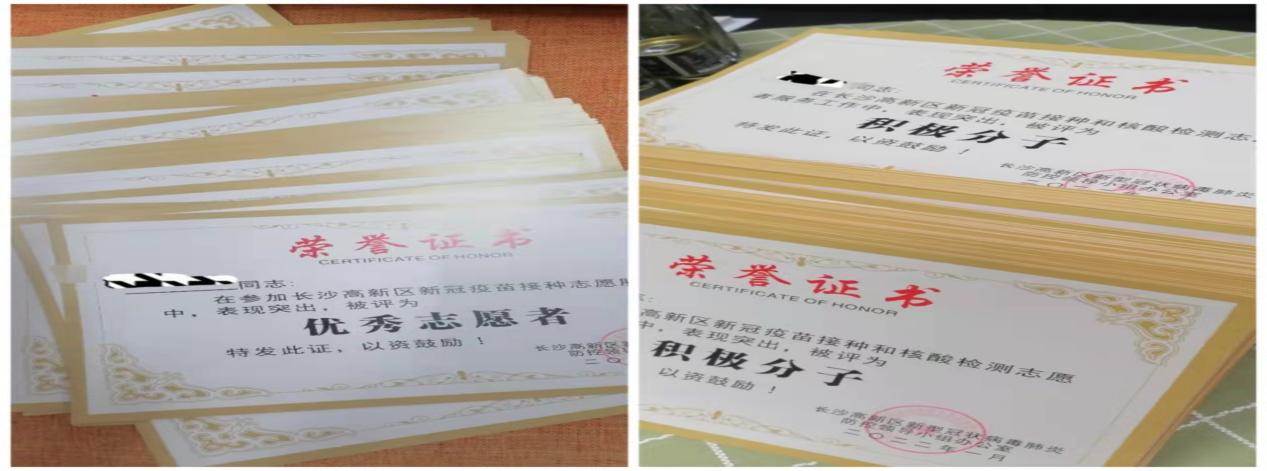 荣誉证书
CERTIFICATE OF HONOR
同志:
在参加长沙高新区新冠疫苗接种志愿
中，表现突出，被评为
优秀志愿者
特发此证，以资鼓励！
长沙高新区
防控领
二〇
荣誉证书
CERTIFICATE OF HONOR
同志:
在长沙高新区新冠疫苗接种和核酸检测志
服务工作中，表现突出，被评为
积极分子
特发此证，以资鼓励！
长沙高新区新型冠状病毒肺炎
防控领导小组办公室
荣誉证书
CERTIFICATE OF HONOR
高新区新冠疫苗接种和核酸检测志愿
中，表现突出，被评为
积极分子
以资鼓励！
长沙高新区新型冠状病毒肺炎
防控领导小组办公室
二〇二二年一月